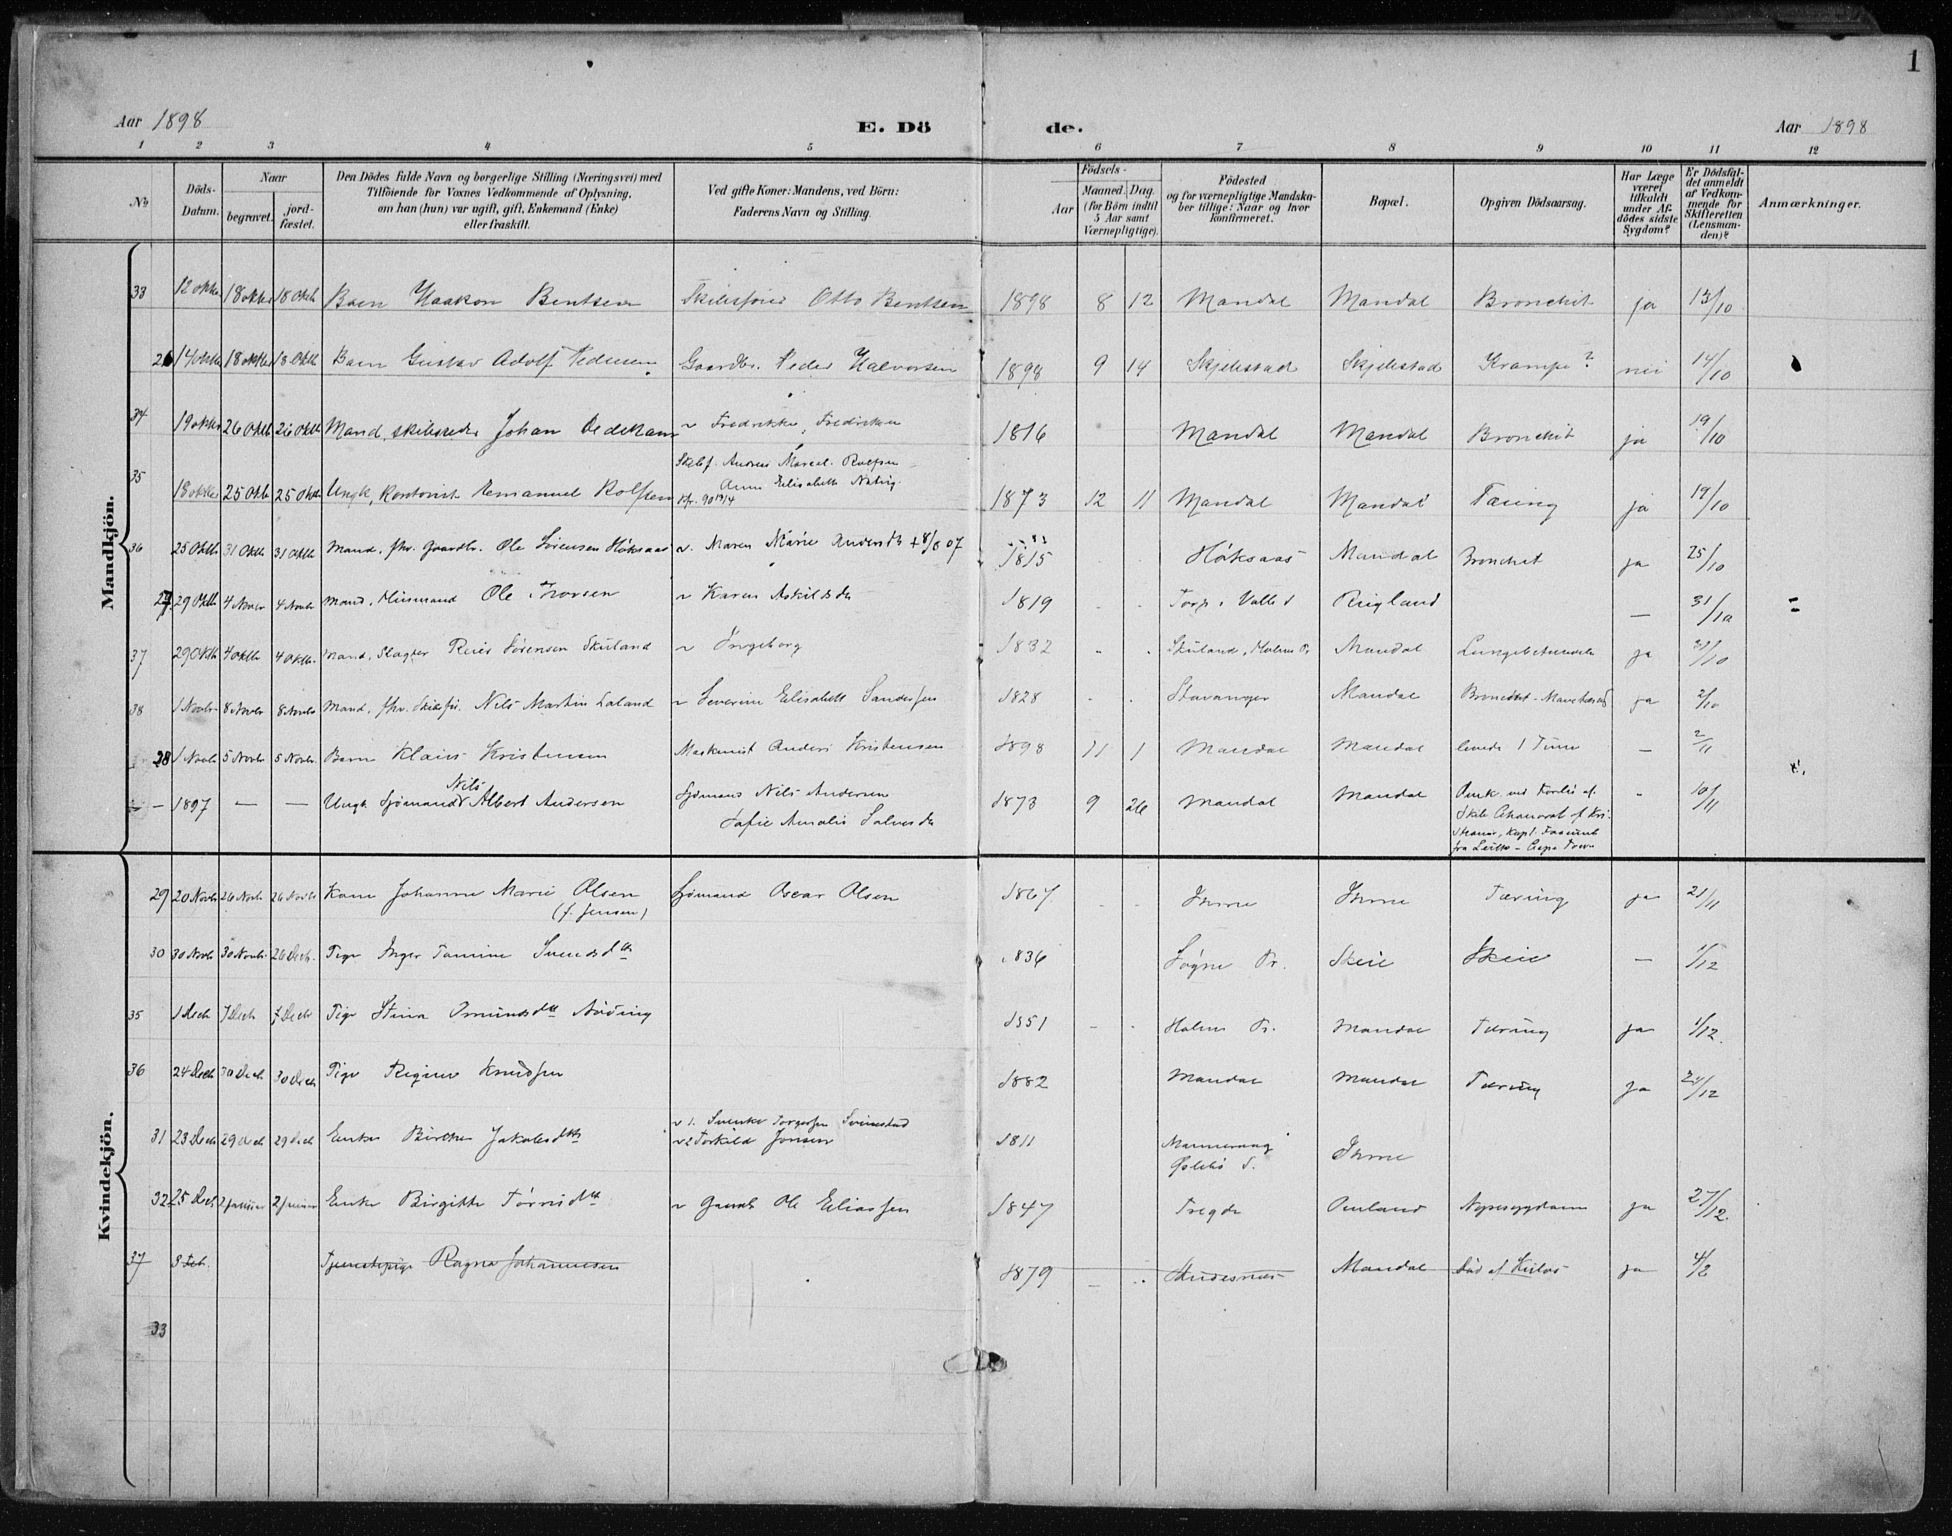 1
Aar 1898 E. Dö de. Aar 1898
1 2 3 4 5 6 7 8 9 10 11 12
No. Döds-Datum. Naar begravet. jordfæstet. Den Dödes fulde Navn og borgerlige Stilling (Næringsvei) med Tilföiende for Voxnes Vedkommende af Oplysning, om han (hun) var ugift, gift, Enkemand (Enke) eller fraskilt. Ved gifte Koner: Mandens, ved Börn: Faderens Navn og Stilling. Födsels- Aar Maaned. Dag. (for Börn indtil 5 Aar samt Værnepligtige). Födested og for værnepligtige Mandskaber tillige: Naar og hvor konfirmeret. Bopæl. Opgiven Dödsaarsag. Har Læge været tilkaldt under Afdödes sidste Sygdom? Er Dödsfaldet anmeldt af Vedkommende for Skifteretten (Lensmanden)? Anmærkninger.
Mandkjön.
33 12 oktbr 18 oktbr 18 Oktb Barn Haakon Bentsen Skibsfører Otto Bentsen 1898 8 12 Mandal Mandal Bronchit ja 13/10
26 14 oktbr 18 oktbr 18 Oktb Barn Gustav Adolf Pedersen Gaardbr. Peder Halvorsen 1898 9 14 Skjebstad Skjebstad Krampe? nei 14/10
34 19 oktbr 26 Oktb 26 Oktb Mand, skibsreder Johan Dedekam ~ Fredrikke, Fredriksen 1816 Mandal Mandal Bronchit ja 19/10
35 18 oktbr 25 Oktb 25 Oktb Ungk, Kontorist Emanuel Rolfsen Skibsf. Andreas Marcel. Rolfsen
Anne Elisabeth 1873 12 11 Mandal Mandal Tæring ja 19/10
36 25 Oktb 31 Oktb 31 Oktb Mand, fhv. Gaardbr. Ole Sørensen Høksaas ~ Maren Marie Andersdtr + 8/8 07 1815 Høksaas Mandal Bronchit ja 25/10
27 29 Oktb 4 Novbr 4 Novbr Mand, Husmand Ole Torsen ~ Karen Askildsdtr 1819 Torp i Valle S Rugland — 31/10
37 29 Oktb 4 Oktb 4 Oktb Mand, Slagter Reier Sørensen Skuland ~ Ingeborg 1832 Skuland, Holms Pr Mandal Lungebetændelse ja 31/10
38 1 Novbr 8 Novbr 8 Novbr Mand, fhv. Skibsf. Nils Martin Laland ~ Severine Elisabeth Sandersen 1828 Stavanger Mandal Bronchit ja 2/10
28 1 Novbr 5 Novbr 5 Novbr Barn Klaus Kristensen Maskinist Anders Kristensen 1898 11 1 Mandal Mandal levede 1 Time — 2/11
— 1897 — — Ungk Sjømand Nils Albert Andersen Sjømand Nils Andersen
Sofie Amalie Salvesdtr 1873 9 26 Mandal Mandal Omk. ved Forlis af
Skib af Kri-
stiania, kapt.
fra Leith – Cape Town 10/11
Kvindekjön.
29 20 Novbr 26 Novbr 26 Novbr Kone Johanne Marie Olsen
(f. Jensen) Sjømand Oscar Olsen 1867 Ihme Ihme Tæring ja 21/11
30 30 Novbr 30 Novbr 26 Decb. Pige Inger Tomine Svendsdtr 1836 Søgne Pr. Skeie Skeie — 1/12
35 1 Decb 7 Decb 7 Decbr Pige Stina Omundsdtr Nøding 1851 Holms Pr. Mandal Tæring ja 1/12
36 24 Decb 30 Decb 30 Decb Pige Regine Knudsen 1882 Mandal Mandal Tæring ja 24/12
31 23 Decb 29 Decb 29 Decb Enke Birthe Jakobsdtr ~ 1. Svenke Torgersen Svinestad
~ 2 Torkild Jonsen 1811 Mannevaag
Øslebø S. Ihme
32 25 Decb 2 januar 2 januar Enke Birgitte Tørrisdtr ~ Gaardb Ole Eliassen 1847 Tregde Omland Nyresygdom ja 27/12
37 3 Feb. Tjenestepige Ragna Johannesen 1879 Andesnæs Mandal Død af Kulos ja 4/2
33